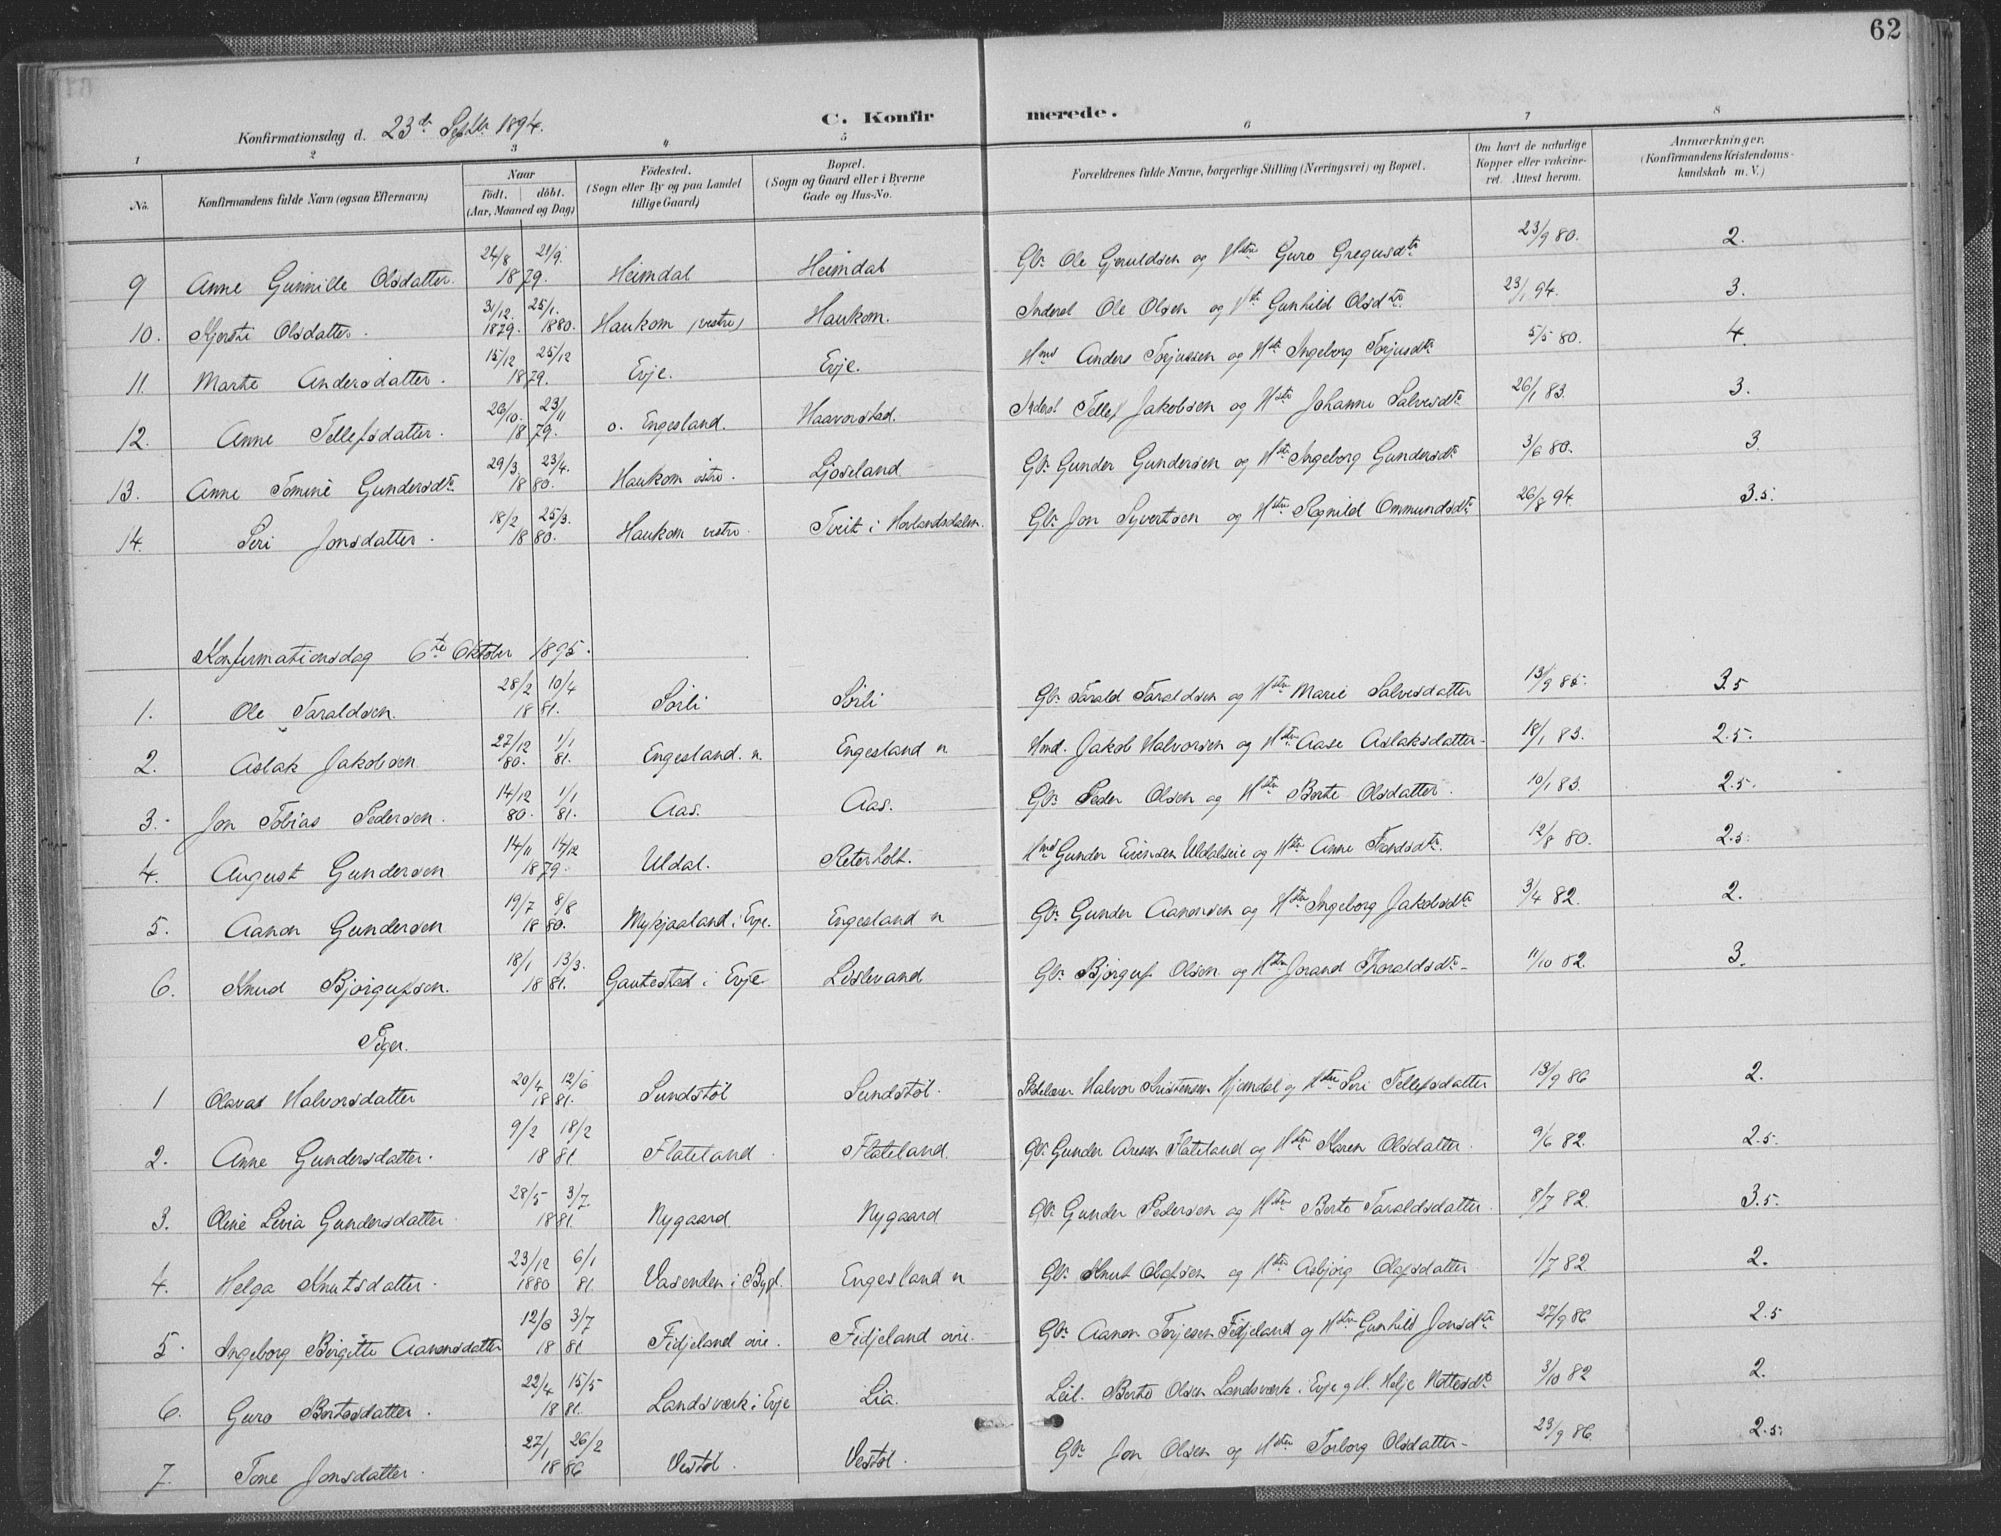 62
C. Konfirmerede.
Konfirmationsdag d. 23de Septbr 1894.
1 2 3 4 5 6 7 8
No. Konfirmandens fulde Navn (ogsaa Efternavn) Naar født. døbt. (Aar, Maaned og Dag) Fødested. (Sogn eller By og paa Landet tillige Gaard) Bopæl. (Sogn og Gaard eller i Byerne Gade og Hus-No. Forældrenes fulde Navne, borgerlige Stilling (Næringsvei) og Bopæl. Om havt de naturlige Kopper eller vakcineret. Attest herom. Anmærkninger, (Konfirmandens Kristendomskundskab m. V.)
9 Anne Gunnilde Olsdatter. 24/8 21/9. 1879. Heimdal Heimdal Gbr Ole Gjeruldsen og Hstru Guro Gregusdtr 23/9 80. 2.
10. Kjerste Olsdatter. 31/12. 1879. 25/1. 1880. Haukom (vestre) Haukom. Inderst Ole Olsen og Hst. Gunhild Olsdtr 23/1 94. 3.
11. Marte Andersdatter. 15/12 25/12 1879. Evje. Evje. Hmd Anders Torjussen og Hst. Ingeborg Torjusdtr 5/5 80. 4
12. Anne Tellefsdatter. 26/10. 23/11 1879. o. Engesland. Haavorstad. Inderst Tellef Jakobsen og Hstr Johanne Salvesdtr 26/1 83. 3.
13. Anne Tomine Gundersdtr 29/3. 23/4. 1880. Haukom østre. Ljoseland Gbr Gunder Gundersen og Hstr Ingeborg Gundersdtr 3/6 80. 3
14. Siri Jonsdatter. 18/2 25/3. 1880. Haukom vestre. Tveit i Hovlandsdalen. Gbr Jon Syvertsen og Hstru Ragnild Ommundsdtr 26/8 94. 3.5.
Konfirmationsdag 6te Oktober 1895.
1. Ole Taraldsen. 28/2 10/4 1881. Sørli Sørli Gbr. Tarald Taraldsen og Hstru Marie Salvesdatter 13/9 85. 3.5
2. Aslak Jakobsen 27/12 80. 1/1 81. Engesland. n. Engesland n Hmd. Jakob Halvorsen og Hstru Aase Aslaksdatter. 18/1 83. 2.5.
3. Jon Tobias Pedersen. 14/12 80. 1/1 81. Aas. Aas. Gbr Peder Olsen og Hstru Berte Olsdatter. 10/1 83. 2.5.
4. August Gundersen 14/11 14/12 1879. Uldal. Sæterholt. Hmd Gunder Evensen Uldalseie og Hstr Anne Tordsdtr. 12/8 80. 2.5.
5. Aanon Gundersen 19/7 8/8 1880. Mykjaaland i Evje. Engesland n Gbr Gunder Aanonsen og Hstru Ingeborg Jakobsdtr 3/4 82. 2.
6. Knud Bjørgufsen. 18/1 13/3. 1881. Gautestad i Evje Lislevand Gbr Bjørguf Olsen og Hstru Jorand Thoraldsdtr 11/10 82. 3.
Piger.
1 Olavas Halvorsdatter 20/4 12/6 1881. Sundstøl Sundstøl. Halvor Kristensen Hjemdal og Hstru Siri Tellefsdatter 13/9 86 2.
2. Anne Gundersdatter. 9/2 18/2 1881. Flateland. Flateland. Gbr Gunder Flateland og Hstru Karen Olsdatter. 9/6 82. 2.5.
3. Oline Livia Gundersdatter. 28/5 3/7. 1881. Nygaard. Nygaard Gbr Gunder Pedersen og Hstru Berte Taraldsdatter. 8/7 82. 3.5.
4. Helga Knutsdatter. 23/12 1880 6/1 81. Vasenden i Bygl. Engesland n Gbr Knut Olafsen og Hstru Asbjørg Olafsdatter. 1/7 82. 2.
5. Ingeborg Birgitte Aanonsdatter 12/6 3/7 1881 Fidjeland øvre. Fidjeland øvre. Gbr Aanon Torjesen Fidjeland og Hstru Gunhild Jonsdtr 27/9 86 2.5
6. Guro Bertesdatter. 22/4 15/5 1881. Landsværk i Evje Lia. Leil. Berte Olsen Landsværk i Evje og H. Helje Nottesdtr 3/10 82 2.
7. Tone Jonsdatter. 27/1 26/2 1886 Vestøl. Vestøl. Gbr Jon Olsen og Hstru Torborg Olsdatter. 23/9 86. 2.5.